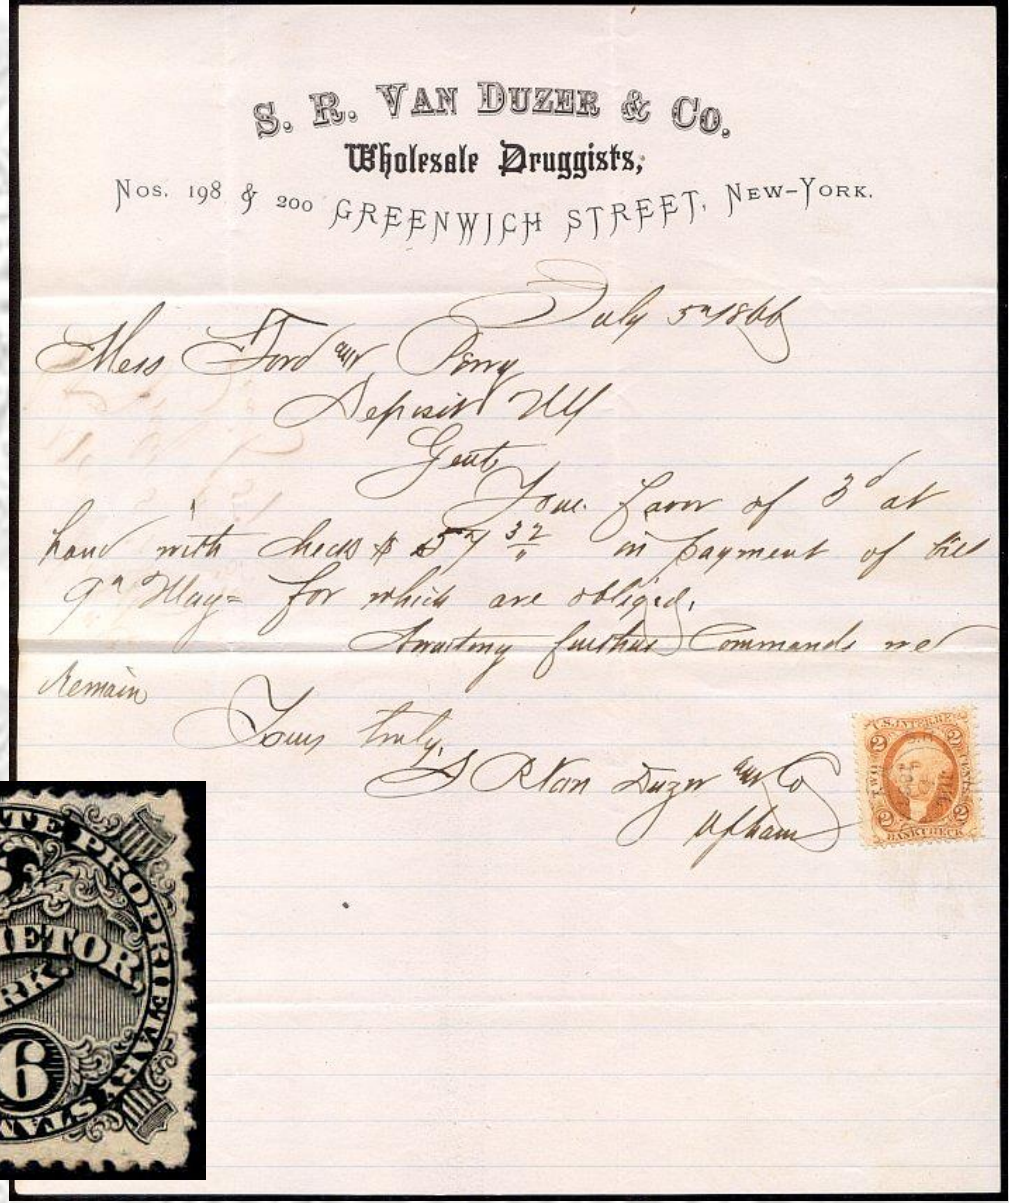 S. R. VAN DUZER & CO.
Wholesale Druggists,
NOS. 198 & 200 GREENWICH STREET, NEW-YORK.
July 5" 1866
Mess Ford and Perry
Deposit NY
Gents
Your favor of 3d at
hand with check $ 57 32/" in payment of bill
9" May= for which are obliged.
Awaiting further Commands we
Remain
Yours truly,
S R Van Duzer and Co
U.S. INTER. RE
2 2
TWO CENTS
2 2
BANK CHECK
TE PROPRIETARY STAM
IETOR,
RK.
6